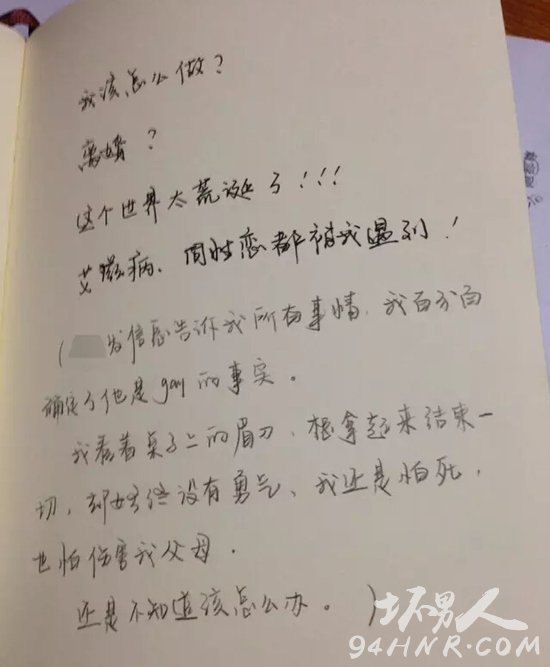 我该怎么做？
离婚？
这个世界太荒诞了！！！
艾滋病、同性恋都被我遇到！
（ 发信息告诉我所有事情，我百分百
确定了他是gay的事实。
我看着桌子上的眉刀，想拿起来结束一
切，却始终没有勇气、我还是怕死，
也怕伤害我父母。
还是不知道该怎么办。）
坏男人
94HNR.COM